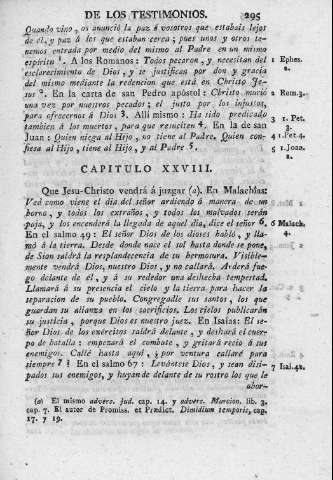 DE LOS TESTIMONIOS. 295
Quando vino, os anunció la paz á vosotros que estabais lejos
de él, y paz á los que estaban cerca; pues unos y otros te-
nemos entrada por medio del mismo al Padre en un mismo
espíritu 1. A los Romanos: Todos pecaron, y necesitan del 1 Ephes. 2.
esclarecimiento de Dios, y se justifican por don y gracia
del mismo mediante la redencion que está en Christo Je-
sus 2. En la carta de san Pedro apóstol: Christo murió 2 Rom.3.
una vez por nuestros pecados; el justo por los injustos,
para ofrecernos á Dios 3. Allí mismo: Ha sido predicado 3 1. Pet. 3.
tambien á los muertos, para que resuciten 4. En la de san 4 1.Pet.4.
Juan: Quien niega al Hijo, no tiene al Padre. Quien con-
fiesa al Hijo, tiene al Hijo, y al Padre 5. 5 1.Joan. 2.
CAPITULO XXVIII.
Que Jesu-Christo vendrá á juzgar (a). En Malachîas:
Ved como viene el dia del señor ardiendo á manera de un
horno, y todos los extraños, y todos los malvados serán
paja, y los encenderá la llegada de aquel dia, dice el señor 6. 6 Malach. 4.
En el salmo 49: El señor Dios de los dioses habló, y lla-
mó á la tierra. Desde donde nace el sol hasta donde se pone,
de Sion saldrá la resplandecencia de su hermosura. Visible-
mente vendrá Dios, nuestro Dios, y no callará. Arderá fue-
go delante de él, y á su rededor una deshecha tempestad.
Llamará á su presencia el cielo y la tierra para hacer la
separacion de su pueblo. Congregadle sus santos, los que
guardan su alianza en los sacrificios. Los cielos publicarán
su justicia, porque Dios es nuestro juez. En Isaías: El se-
ñor Dios de los exércitos saldrá delante, y deshará el cuer-
po de batalla: empezará el combate, y gritará recio á sus
enemigos. Callé hasta aquí, ¿por ventura callaré para
siempre 7? En el salmo 67: Levántese Dios, y sean disi- 7 Isai.42.
pados sus enemigos, y huyan de delante de su rostro los que le
abor-
(a) El mismo advers. jud. cap. 14. y advers. Marcion. lib. 3.
cap. 7. El autor de Promiss. et Prædict. Dimidium temporis, cap.
17. y 19.